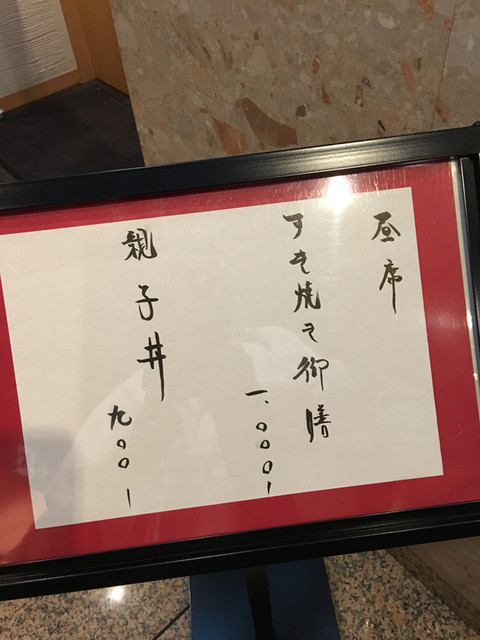 昼席
すき焼き御膳
一、〇〇〇ー
親子丼
九〇〇ー